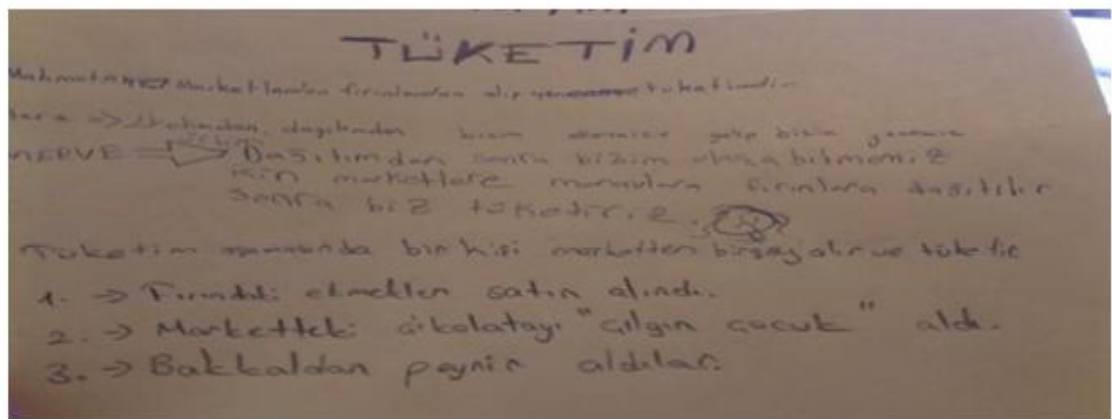 TÜKETİM
Marketlerden fırınlardan alıp tüketimdir
bizim gelip bizim
MERVE => Dağıtımdan sonra bizim ulaşabilmemiz
için marketlere manavlara fırınlara dağıtılır
sonra biz tüketiriz.
Tüketim aşamasında bir kişi marketten birşey alır ve tüketir
1. → Fırındaki ekmekler satın alındı.
2. → Marketteki çikolatayı "çılgın çocuk" aldı.
3. → Bakkaldan peynir aldılar.